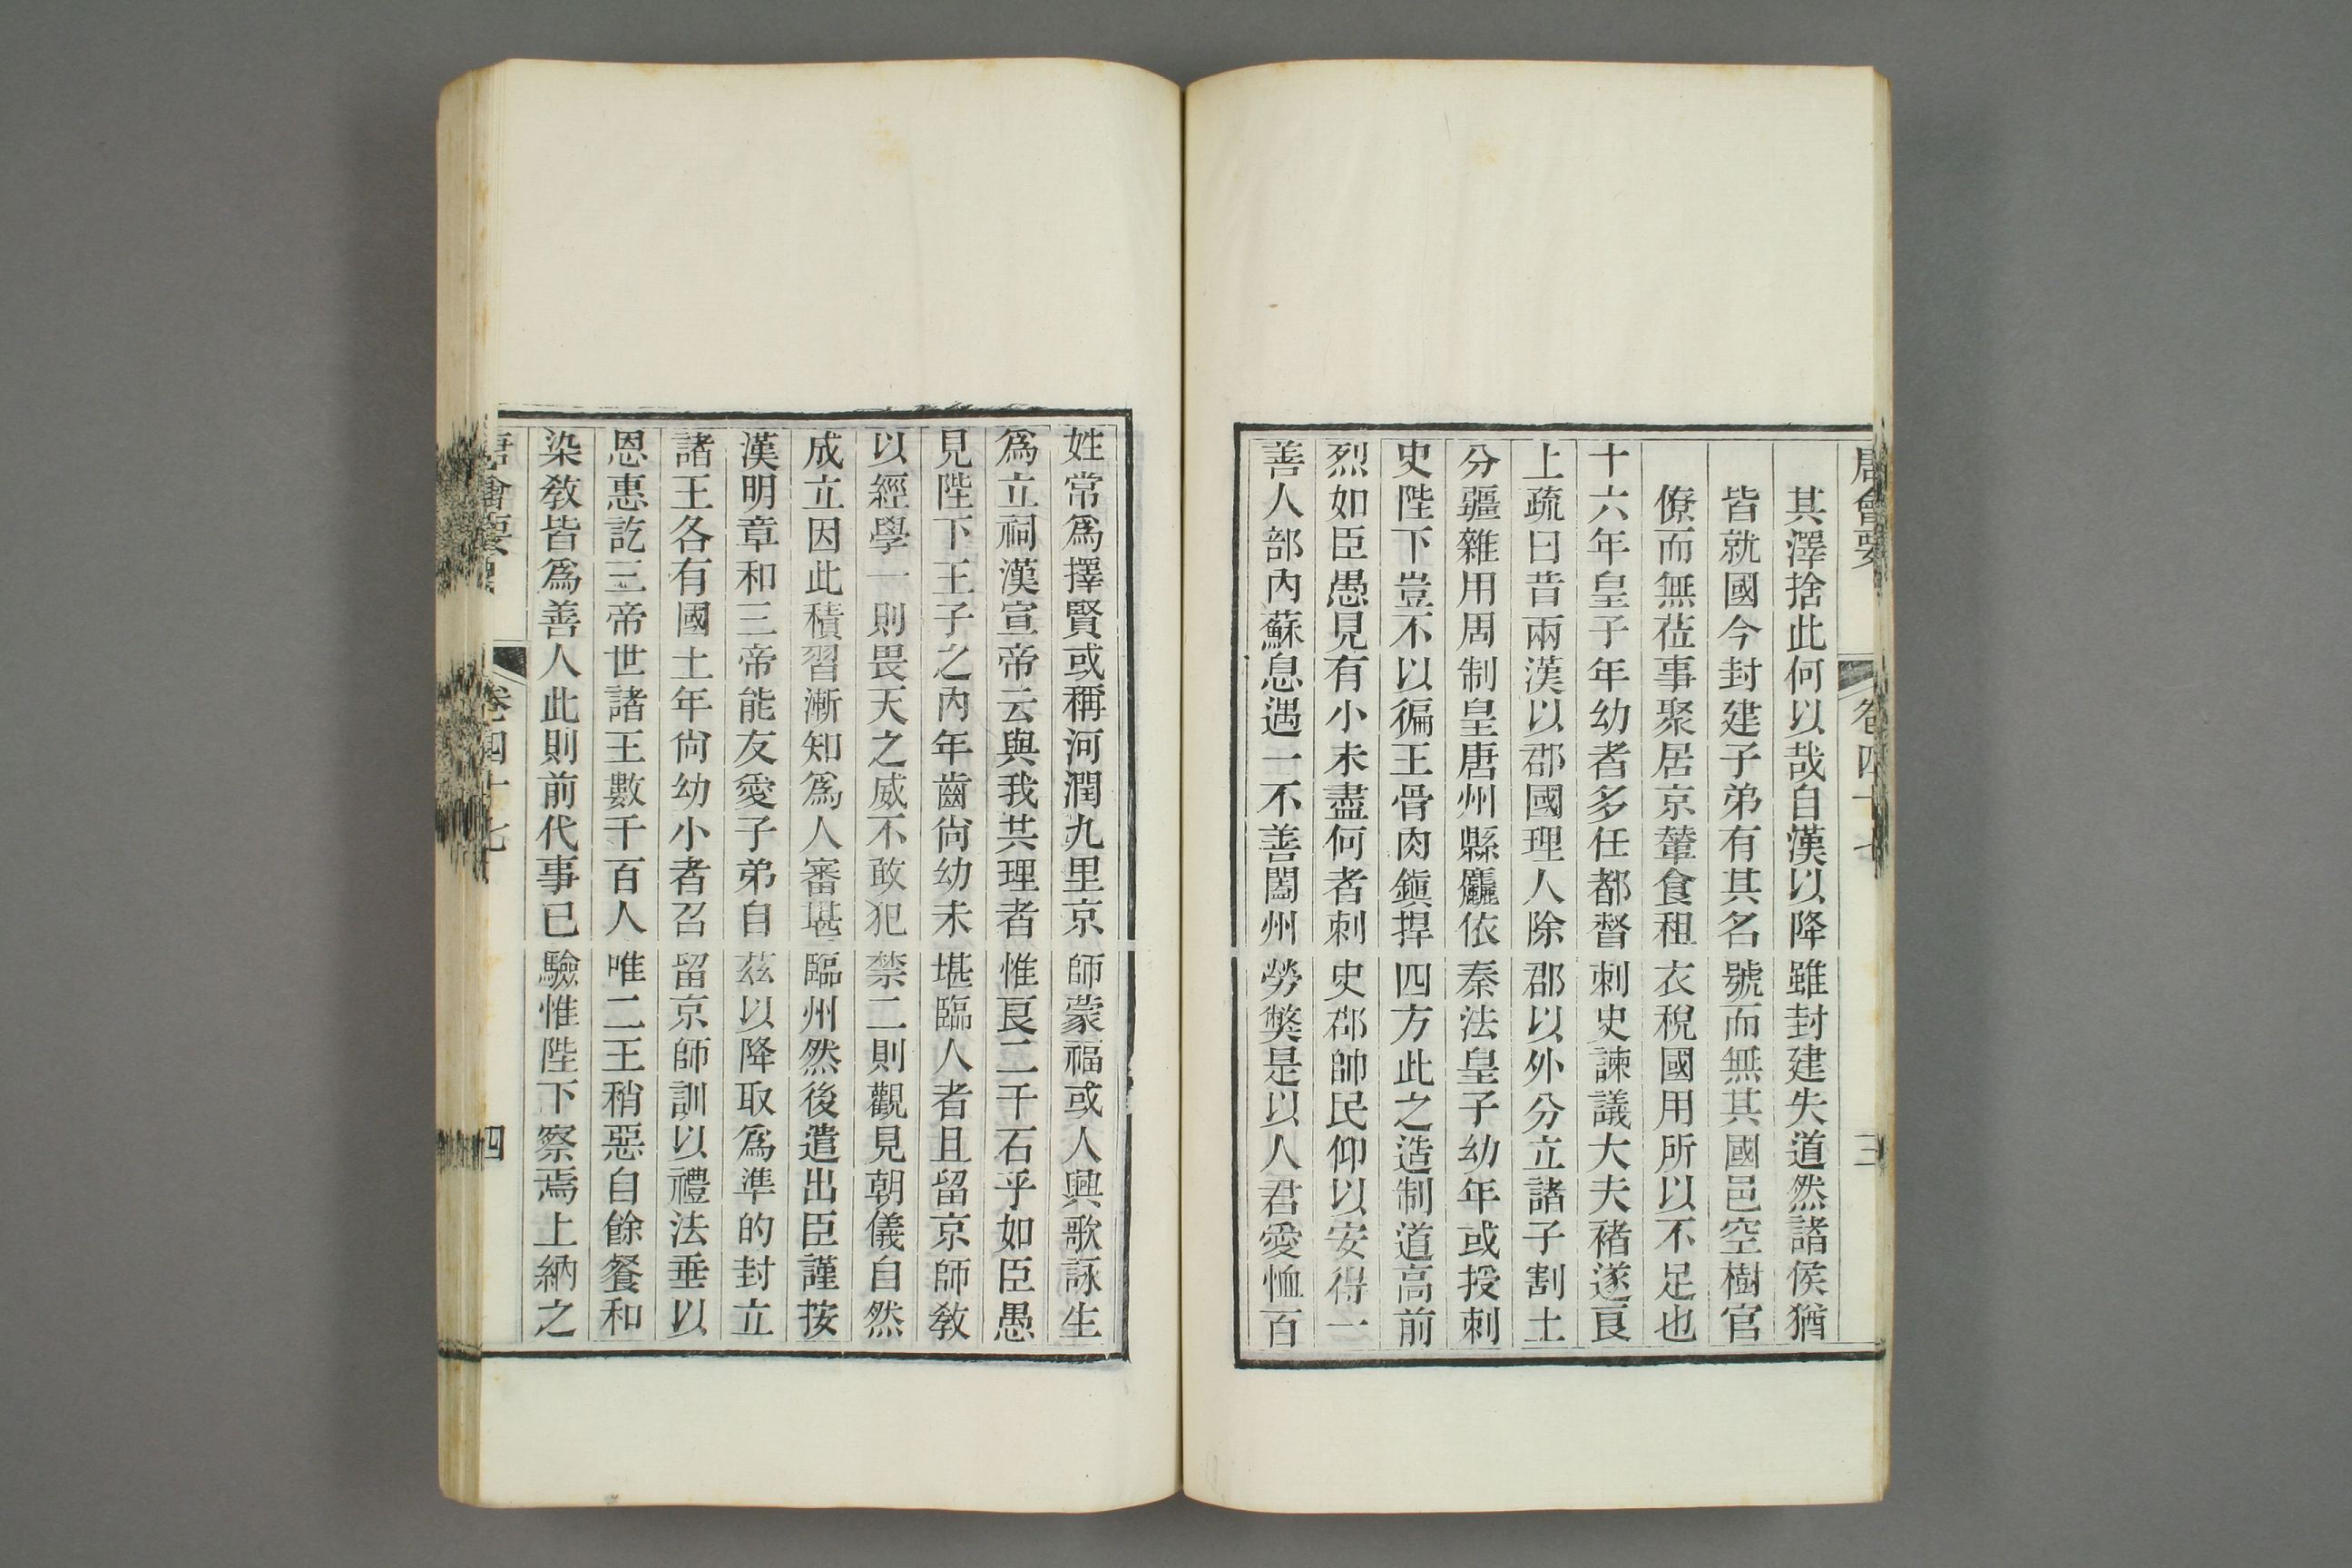 唐會要 卷四十七 三
其澤捨此何以哉自漢以降雖封建失道然諸侯猶
皆就國今封建子弟有其名號而無其國邑空樹官
僚而無莅事聚居京輦食租衣稅國用所以不足也
十六年皇子年幼者多任都督刺史諫議大夫褚遂良
上疏曰昔兩漢以郡國理人除郡以外分立諸子割土
分疆雜用周制皇唐州縣麤依秦法皇子幼年或授刺
史陛下豈不以徧王骨肉鎭捍四方此之造制道高前
烈如臣愚見有小未盡何者刺史郡帥民仰以安得一
善人部內蘇息遇一不善闔州勞弊是以人君愛恤百
姓常爲擇賢或稱河潤九里京師蒙福或人興歌詠生
爲立祠漢宣帝云與我共理者惟良二千石乎如臣愚
見陛下王子之內年齒尙幼未堪臨人者且留京師敎
以經學一則畏天之威不敢犯禁二則觀見朝儀自然
成立因此積習漸知爲人審堪臨州然後遣出臣謹按
漢明章和三帝能友愛子弟自茲以降取爲準的封立
諸王各有國土年尙幼小者召留京師訓以禮法垂以
恩惠訖三帝世諸王數千百人唯二王稍惡自餘餐和
染敎皆爲善人此則前代事已驗惟陛下察焉上納之
唐會要 卷四十七 四